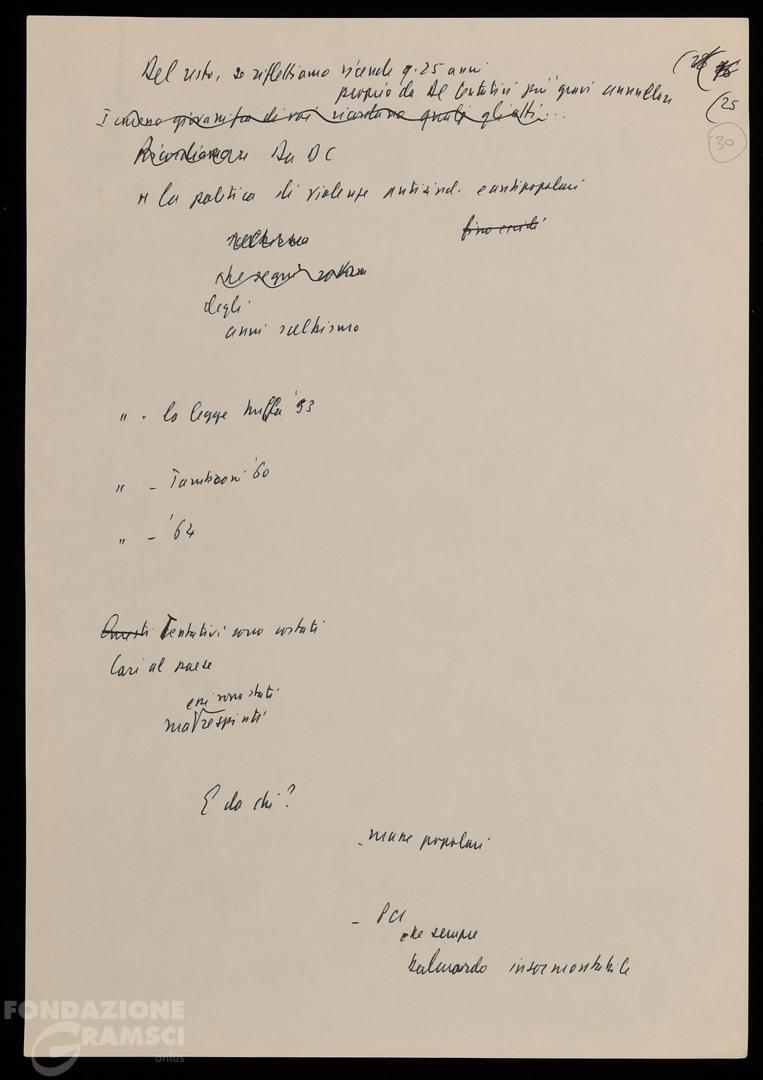 Del resto, se riflettiamo vicende q. 25 anni
proprio da DC tentativi più gravi annullare
I meno giovani fra di voi ricordano quali gli altri ...
Ricordiamone Da DC
" la politica di violenze antisind. e antipopolari
fino eccidi
scelbismo
che seguì
degli
anni scelbismo
" - la legge truffa '53
" - Tambroni '60
" - '64
Questi Tentativi sono costati
Cari al paese
essi sono stati
ma respinti
E da chi?
- masse popolari
- PCI
che sempre
baluardo insormontabile
(25
30
FONDAZIONE
GRAMSCI
onlus